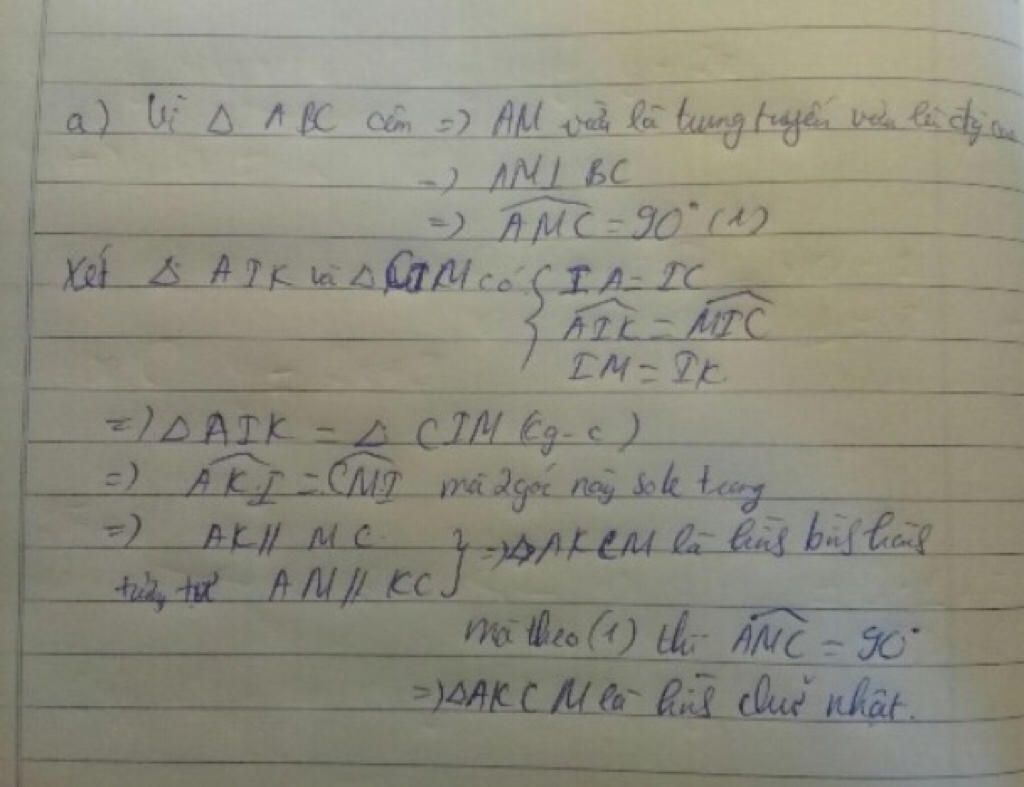 a) Vì △ ABC cân => AM vừa là trung tuyến vừa là đg cao
=> AM⊥BC
=> \widehat{AMC} = 90° (1)
Xét △ AIK và △CIM có { IA = IC
\widehat{AIK} = \widehat{MIC}
IM = IK
=> △AIK = △ CIM (cg-c)
=> \widehat{AKI} = \widehat{CMI} mà 2 góc này sole trong
=> AK // MC
tương tự AM // KC } => △AKCM là hình bình hành
mà theo (1) thì \widehat{AMC} = 90°
=> △AKCM là hình chữ nhật.